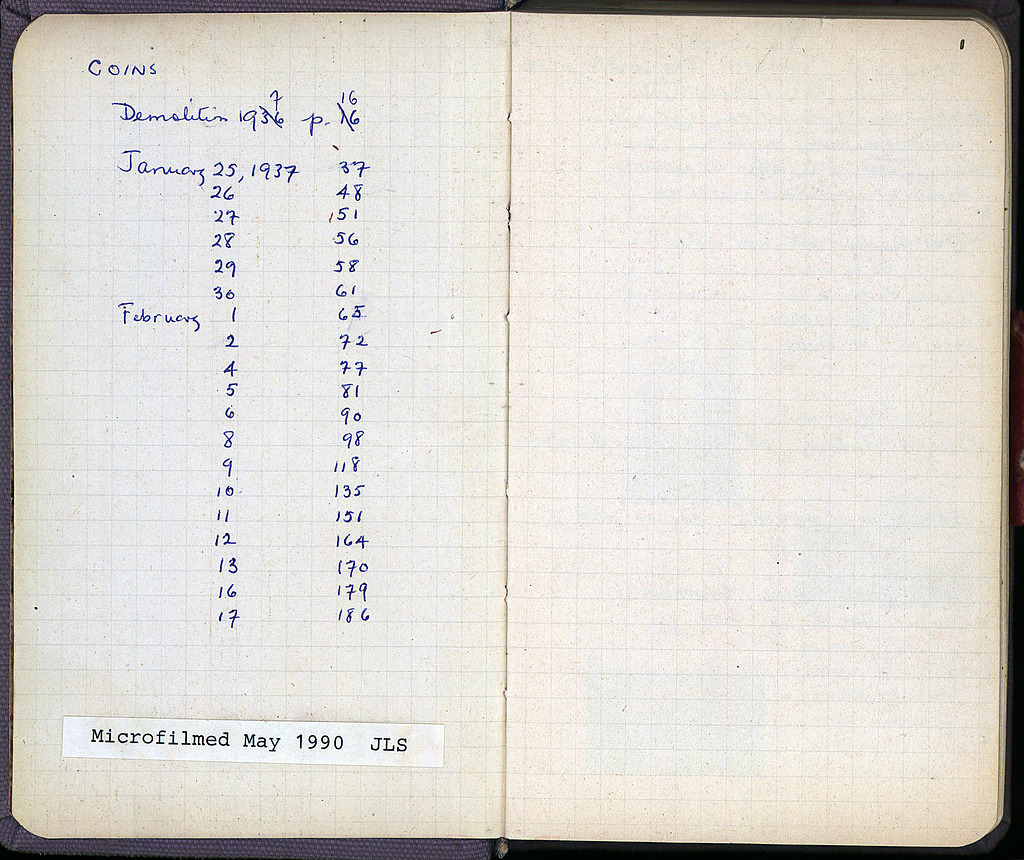 COINS
Demolition 19367 p. 16 16
January 25, 1937 37
26 48
27 51
28 56
29 58
30 61
February 1 65
2 72
4 77
5 81
6 90
8 98
9 118
10 135
11 151
12 164
13 170
16 179
17 186
Microfilmed May 1990 JLS
1